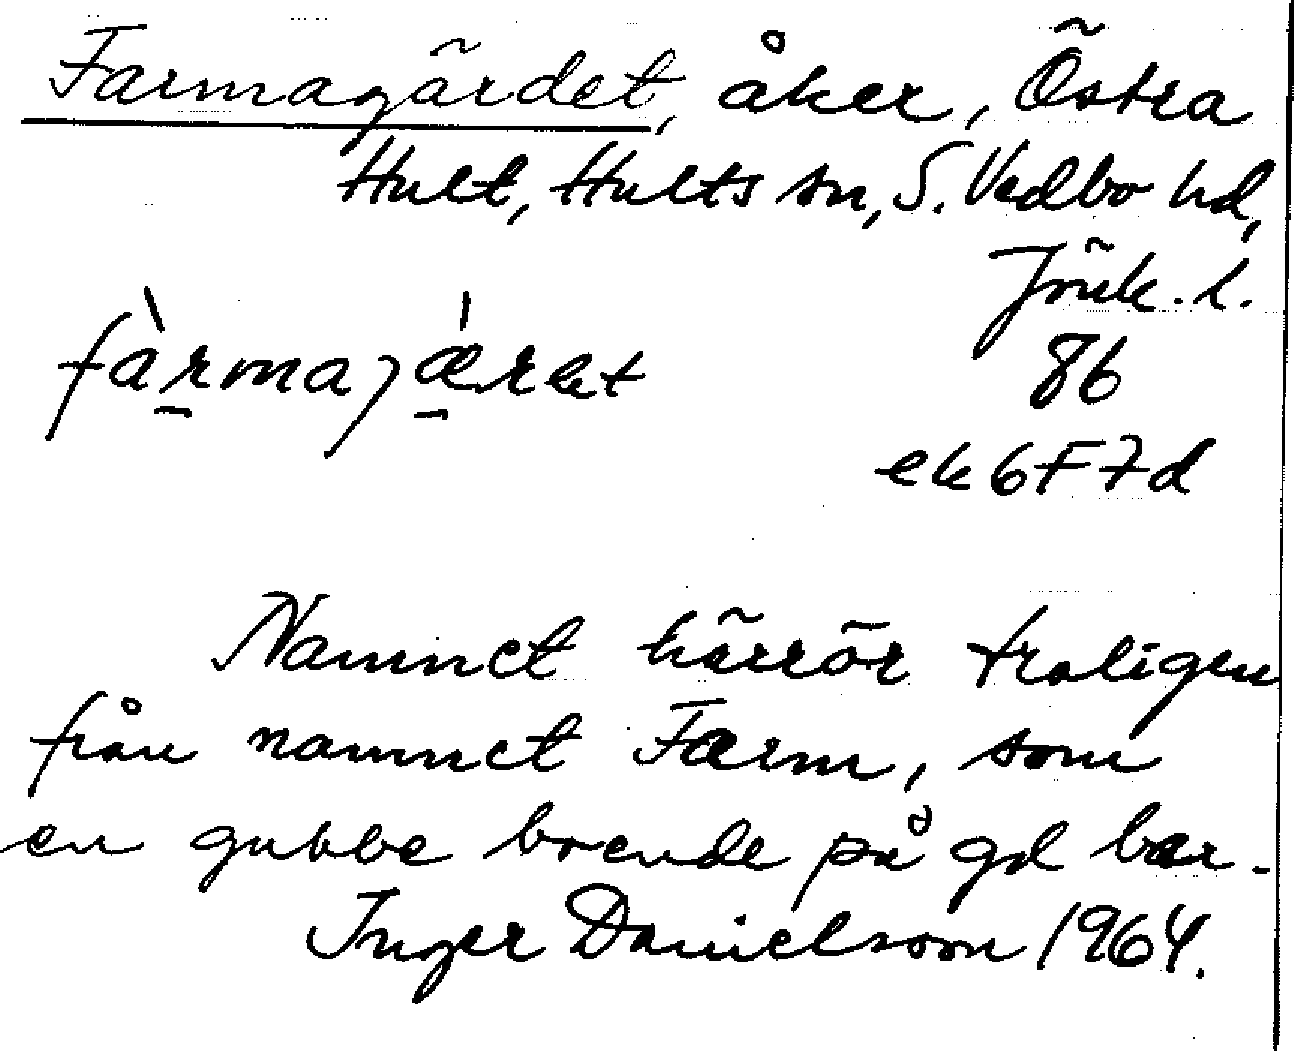 Farmagärdet, åker, Östra
Hult, Hults sn, S. Vedbo hd,
Jönk. l.
fàrmajæret
86
ek 6F7d
Namnet härrör troligen
från namnet Farm, som
en gubbe boende på gd bar.
Inger Danielsson 1964.